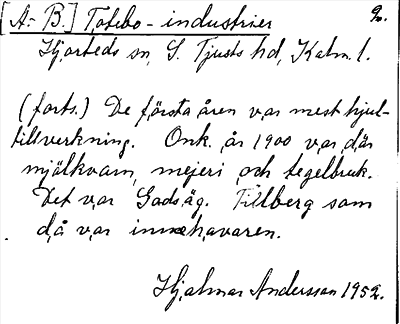 [A.-B.] Totebo-industrier 2.
Hjorteds sn, S. Tjusts hd, Kalm. l.
(forts.) De första åren var mest hjul-
tillverkning. Omk. år 1900 var där
mjölkvarn, mejeri och tegelbruk.
Det var Godsäg. Tillberg som
då var innehavaren.
Hjalmar Andersson 1952.